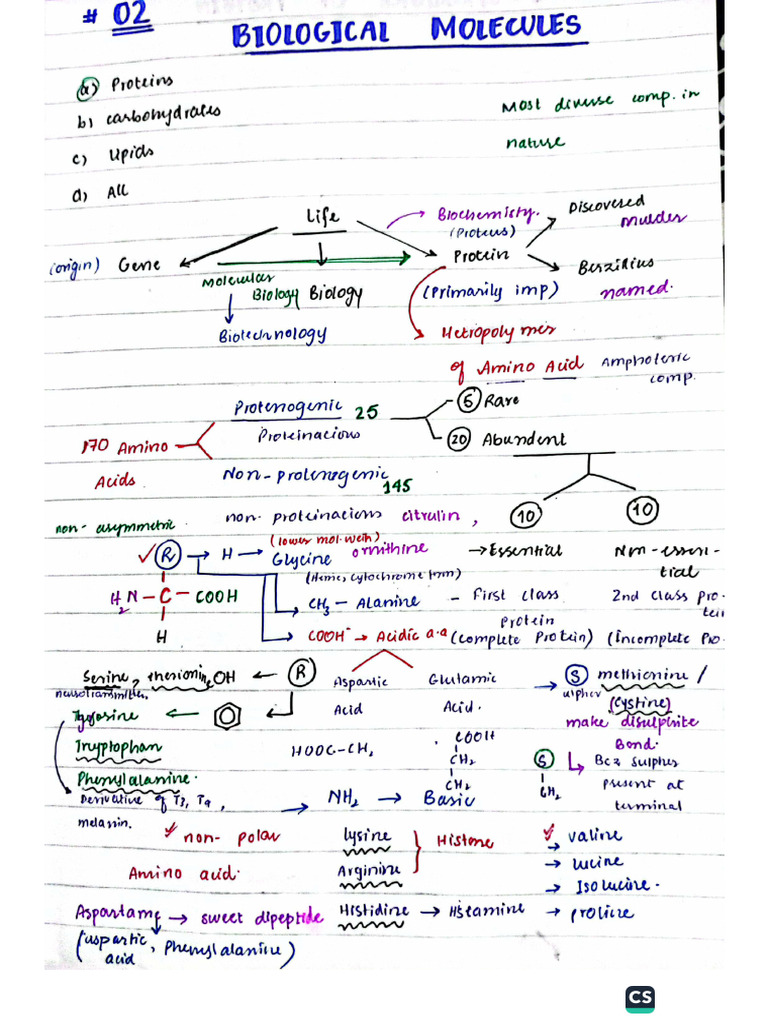 # 02
BIOLOGICAL MOLECULES
a) Proteins
b) carbohydrates
c) Lipids
d) All
Most diverse comp. in
nature
Life
Biochemisty.
(Proteus)
Discovered
Mulder
(origin) Gene
Protein
Berzilius
named.
Molecular
Biology Biology
(Primarily imp)
Biotechnology
Hetropolymer
of Amino Acid
Ampholeric
comp.
Protenogenic 25
Proteinacious
5 Rare
20 Abundent
170 Amino
Acids.
Non-protenogenic
145
non-proteinacious citrulin,
ornithine
10
10
non-asymmetric
(lower mol. wein)
R → H → Glycine
(Heme, cytochrome form)
→ Essential
Non-essen-
tial
H2N – C – COOH
H
CH3 – Alanine
– First class
protein
(complete Protein)
2nd class pro-
tein
(incomplete Pro.
COOH- → Acidic a.a
Aspartic
Acid
Glutamic
Acid.
HOOC-CH2
COOH
CH2
CH2
Serine, therionine OH ← R
neurotransmitter.
Tyrosine ←
Tryptophan
Phenylalanine.
Derivative of T3, T4,
melassin.
→ S methionine /
ulpher (Cystine)
make disulphite
Bond.
S
CH2
Bcz sulpher
present at
terminal
→ NH2 → Basic
Lysine
Arginine
Histone
Histidine → Histamine
✓ non-polar
Amino acid.
✓ valine
→ lucine
→ Isolucine.
→ proline
Aspartame → sweet dipeptide
(aspartic acid, Phenylalanine)
CS